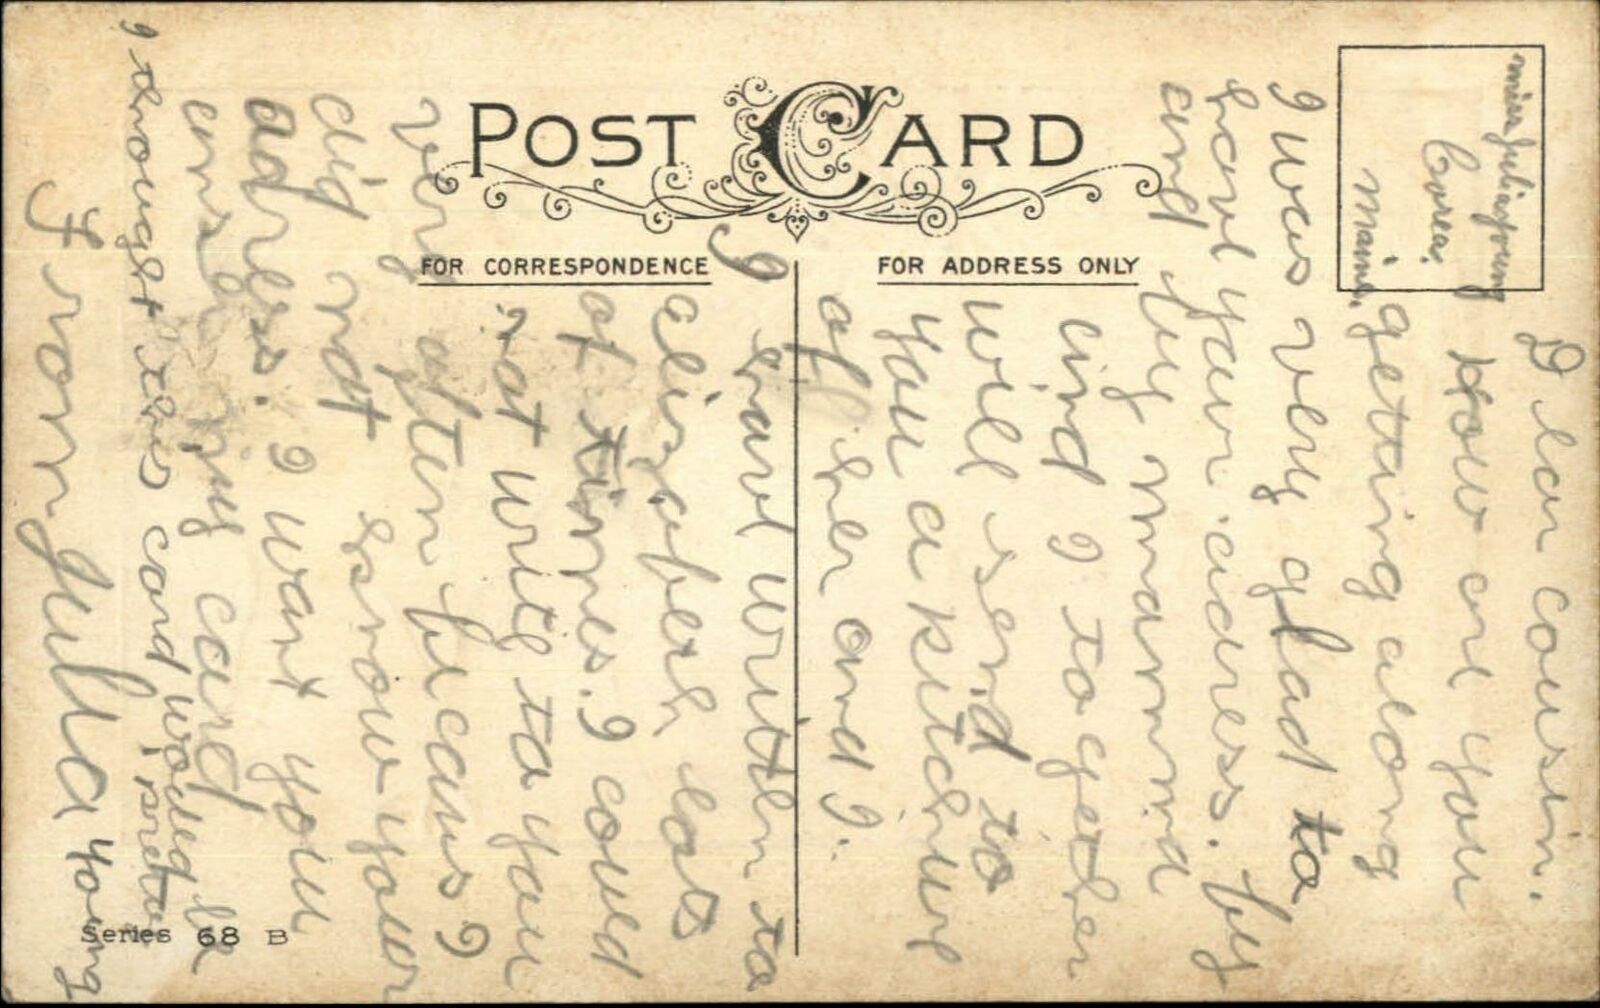 POST CARD
FOR CORRESPONDENCE
FOR ADDRESS ONLY
Series 68 B
miss Julia young
Corea.
Maine.
Dear cousin.
How are you
getting along
I was very glad to
have your adress. by
and by mamma
and I to gether
will send to
you a kitchure
of her and I.
I have writen to
elizabeth lots
of times. I could
not write to you
very often becaus I
did not know your
adress. I want you
ans my card
I throught this card would be
pretty
From Julia Young